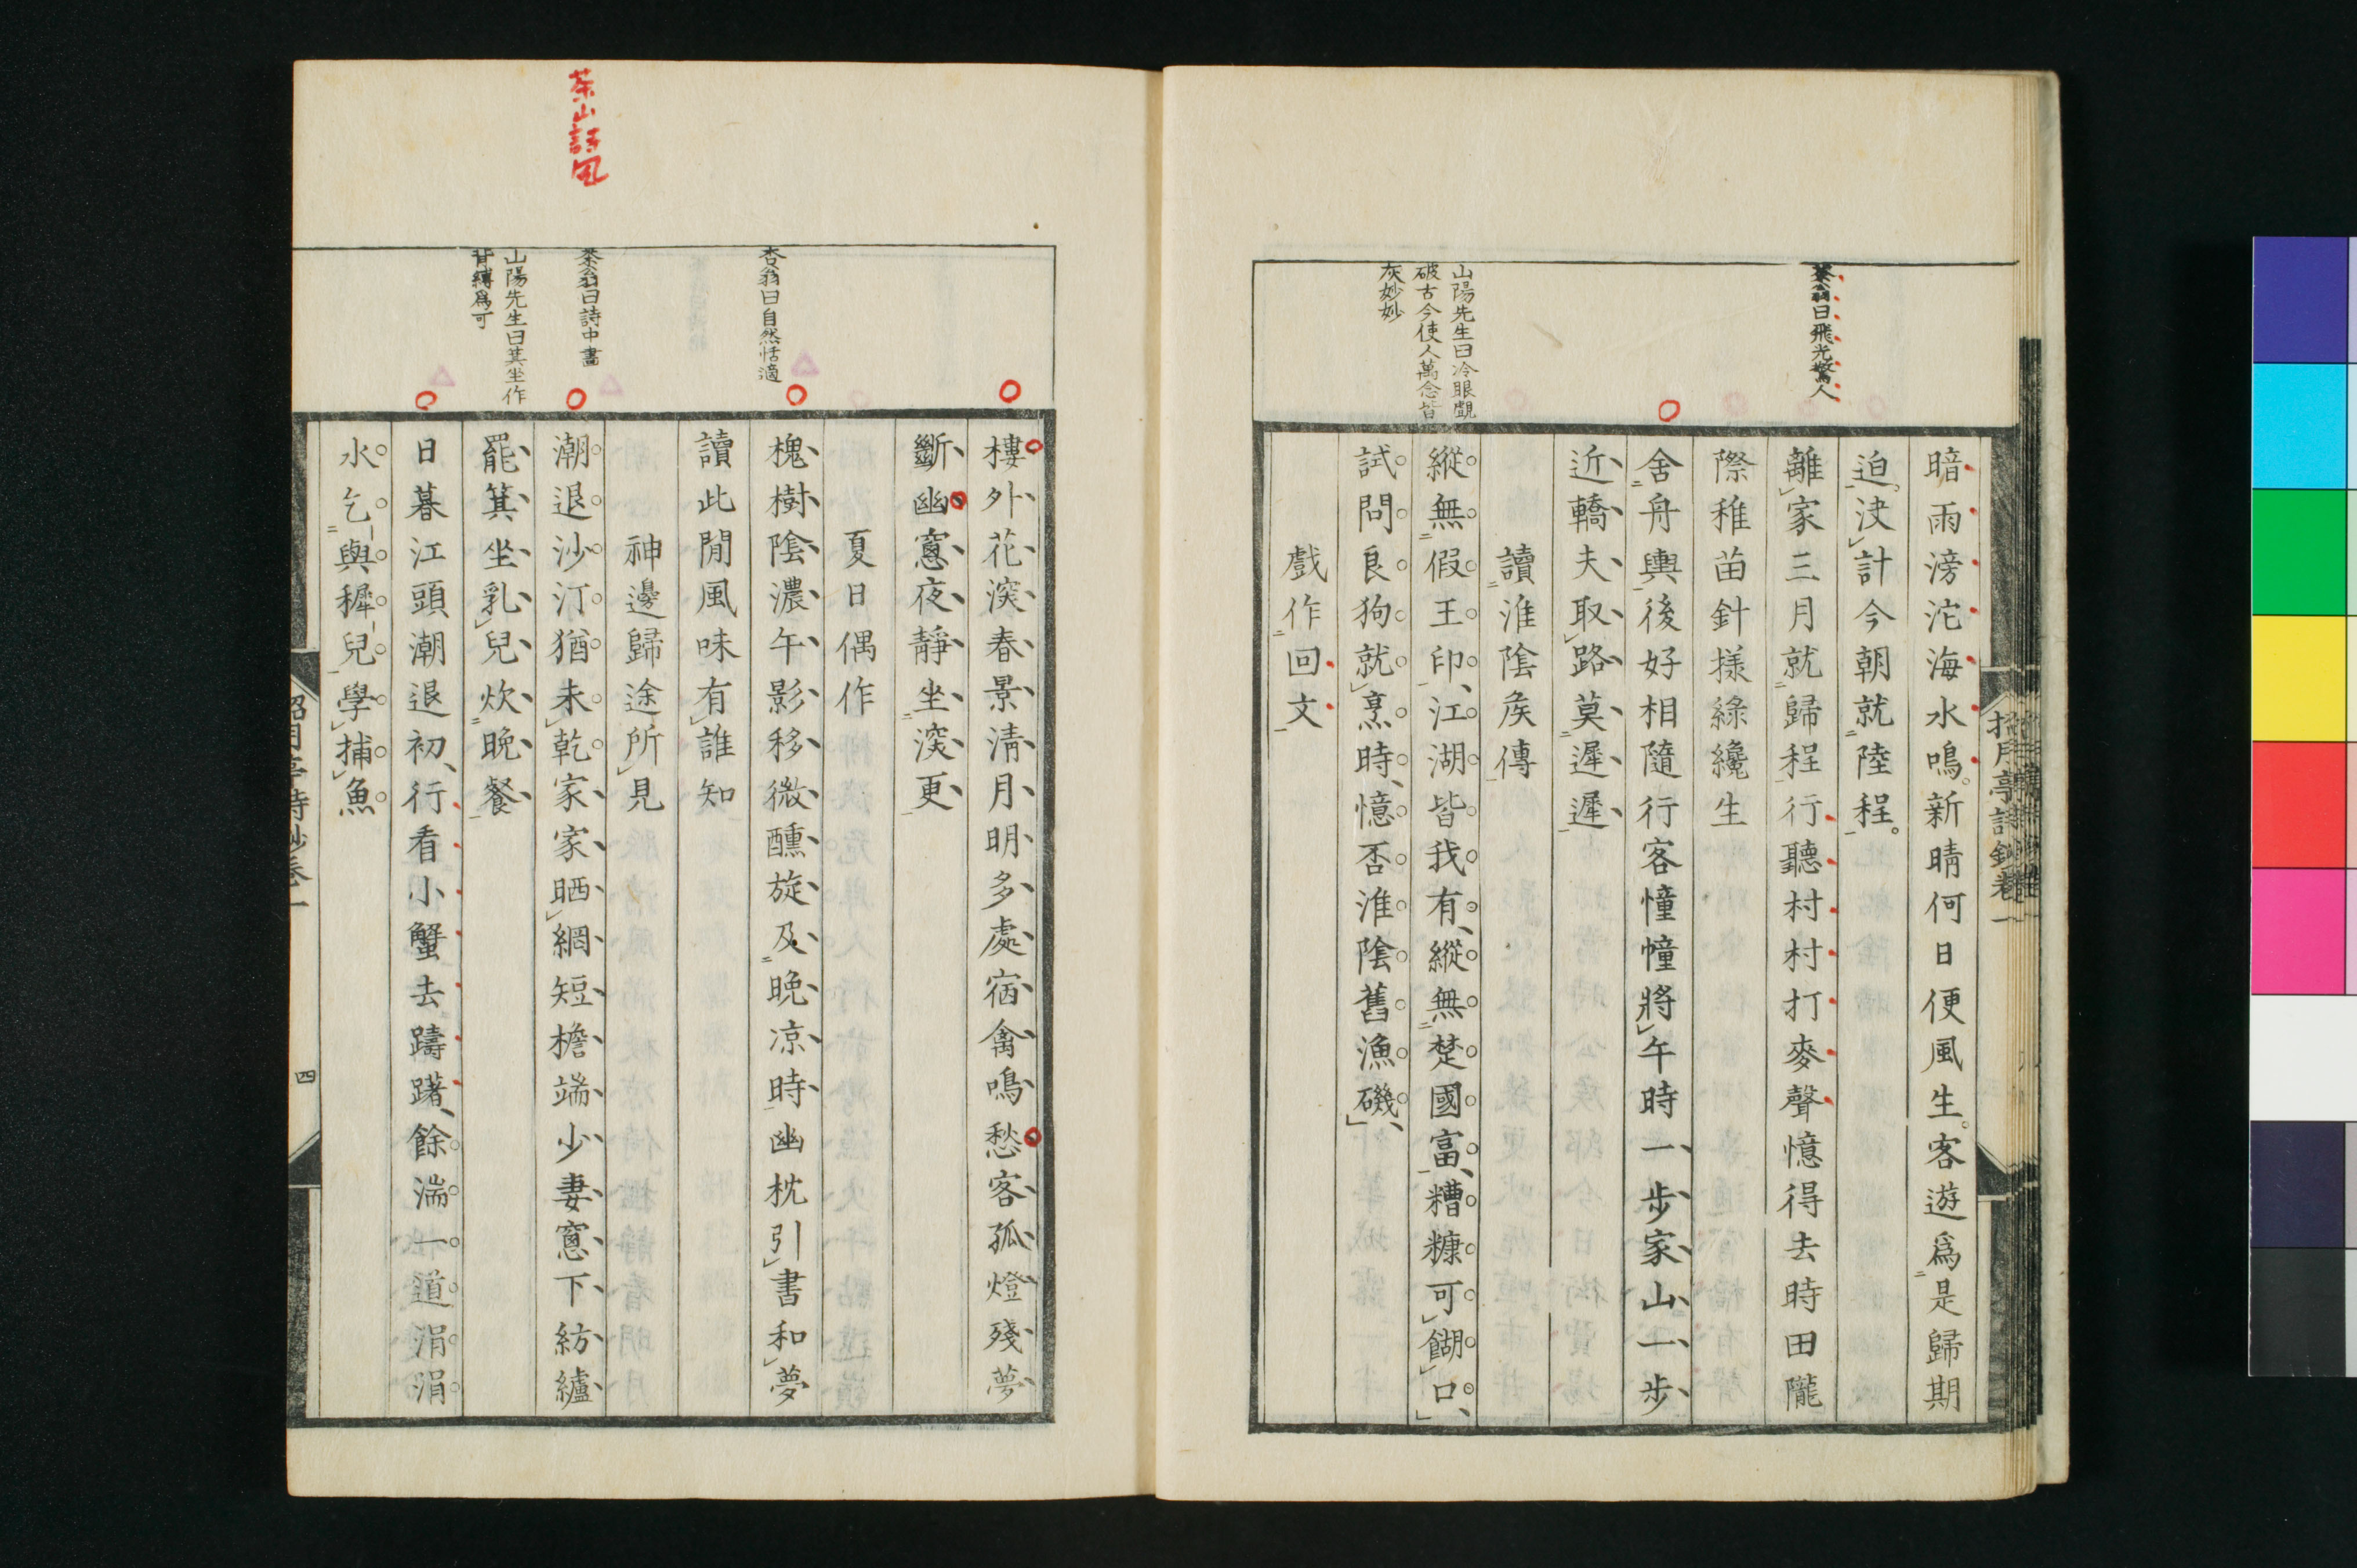 茶翁曰飛光驚人
山陽先生曰冷眼覷
破古今使人萬念皆
灰妙妙
暗雨滂沱海水鳴新晴何日便風生客遊爲是歸期
迫決計今朝就陸程
離家三月就歸程行聽村村打麥聲憶得去時田隴
際稚苗針樣綠纔生
舍舟輿後好相隨行客憧憧將午時一步家山一步
近轎夫取路莫遲遲
讀淮陰矦傳
縱無假王印江湖皆我有縱無楚國富糟糠可餬口
試問良狗就烹時憶否淮陰舊漁磯
戲作回文
茶山詩風
杏翁曰自然恬適
茶翁曰詩中畵
山陽先生曰箕坐作
背縛爲可
樓外花深春景淸月明多處宿禽鳴愁客孤燈殘夢
斷幽窻夜靜坐深更
夏日偶作
槐樹陰濃午影移微醺旋及晚凉時幽枕引書和夢
讀此閒風味有誰知
神邊歸途所見
潮退沙汀猶未乾家家晒網短檐端少妻窻下紡纑
罷箕坐乳兒炊晚餐
日暮江頭潮退初行看小蟹去躊躇餘湍一道涓涓
水乞與穉兒學捕魚
四